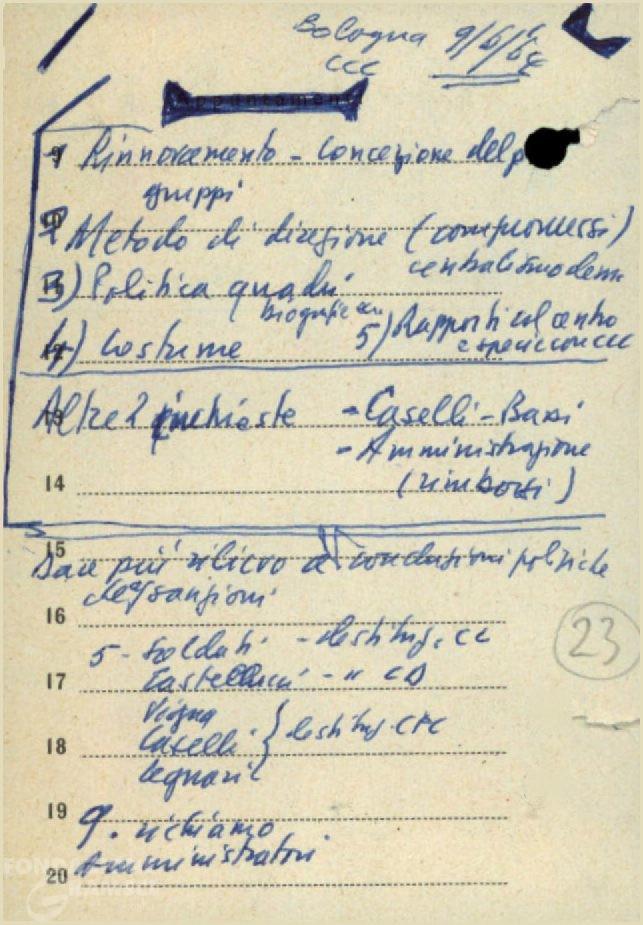 Bologna 9/6/64
CCC
Appuntamenti
1 Rinnovamento - Concezione del p
gruppi
2 Metodo di direzione (compromessi)
centralismo dem
3) Politica quadri
biografie
5) Rapporti col centro
e specie con CCC
4) Costume
Altre 2 inchieste - Caselli - Bassi
- Amministrazione
(rimborsi)
14
15
Dare più rilievo a conclusioni politiche
che sanzioni
16
5 - Soldati - destituz. CC
23
17
Castellucci - " CD
Vigna
18
Caselli } destituz. CFC
Legnani
19
9. richiamo
Amministratori
20